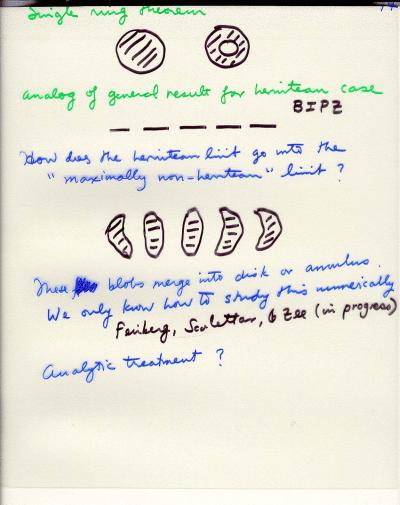 Single ring theorem
analog of general result for hermitean case
BIPZ
How does the hermitean limit go into the
"maximally non-hermitean" limit ?
These blobs merge into disk or annulus.
We only know how to study this numerically
Feinberg, Scalettar, & Zee (in progress)
Analytic treatment ?